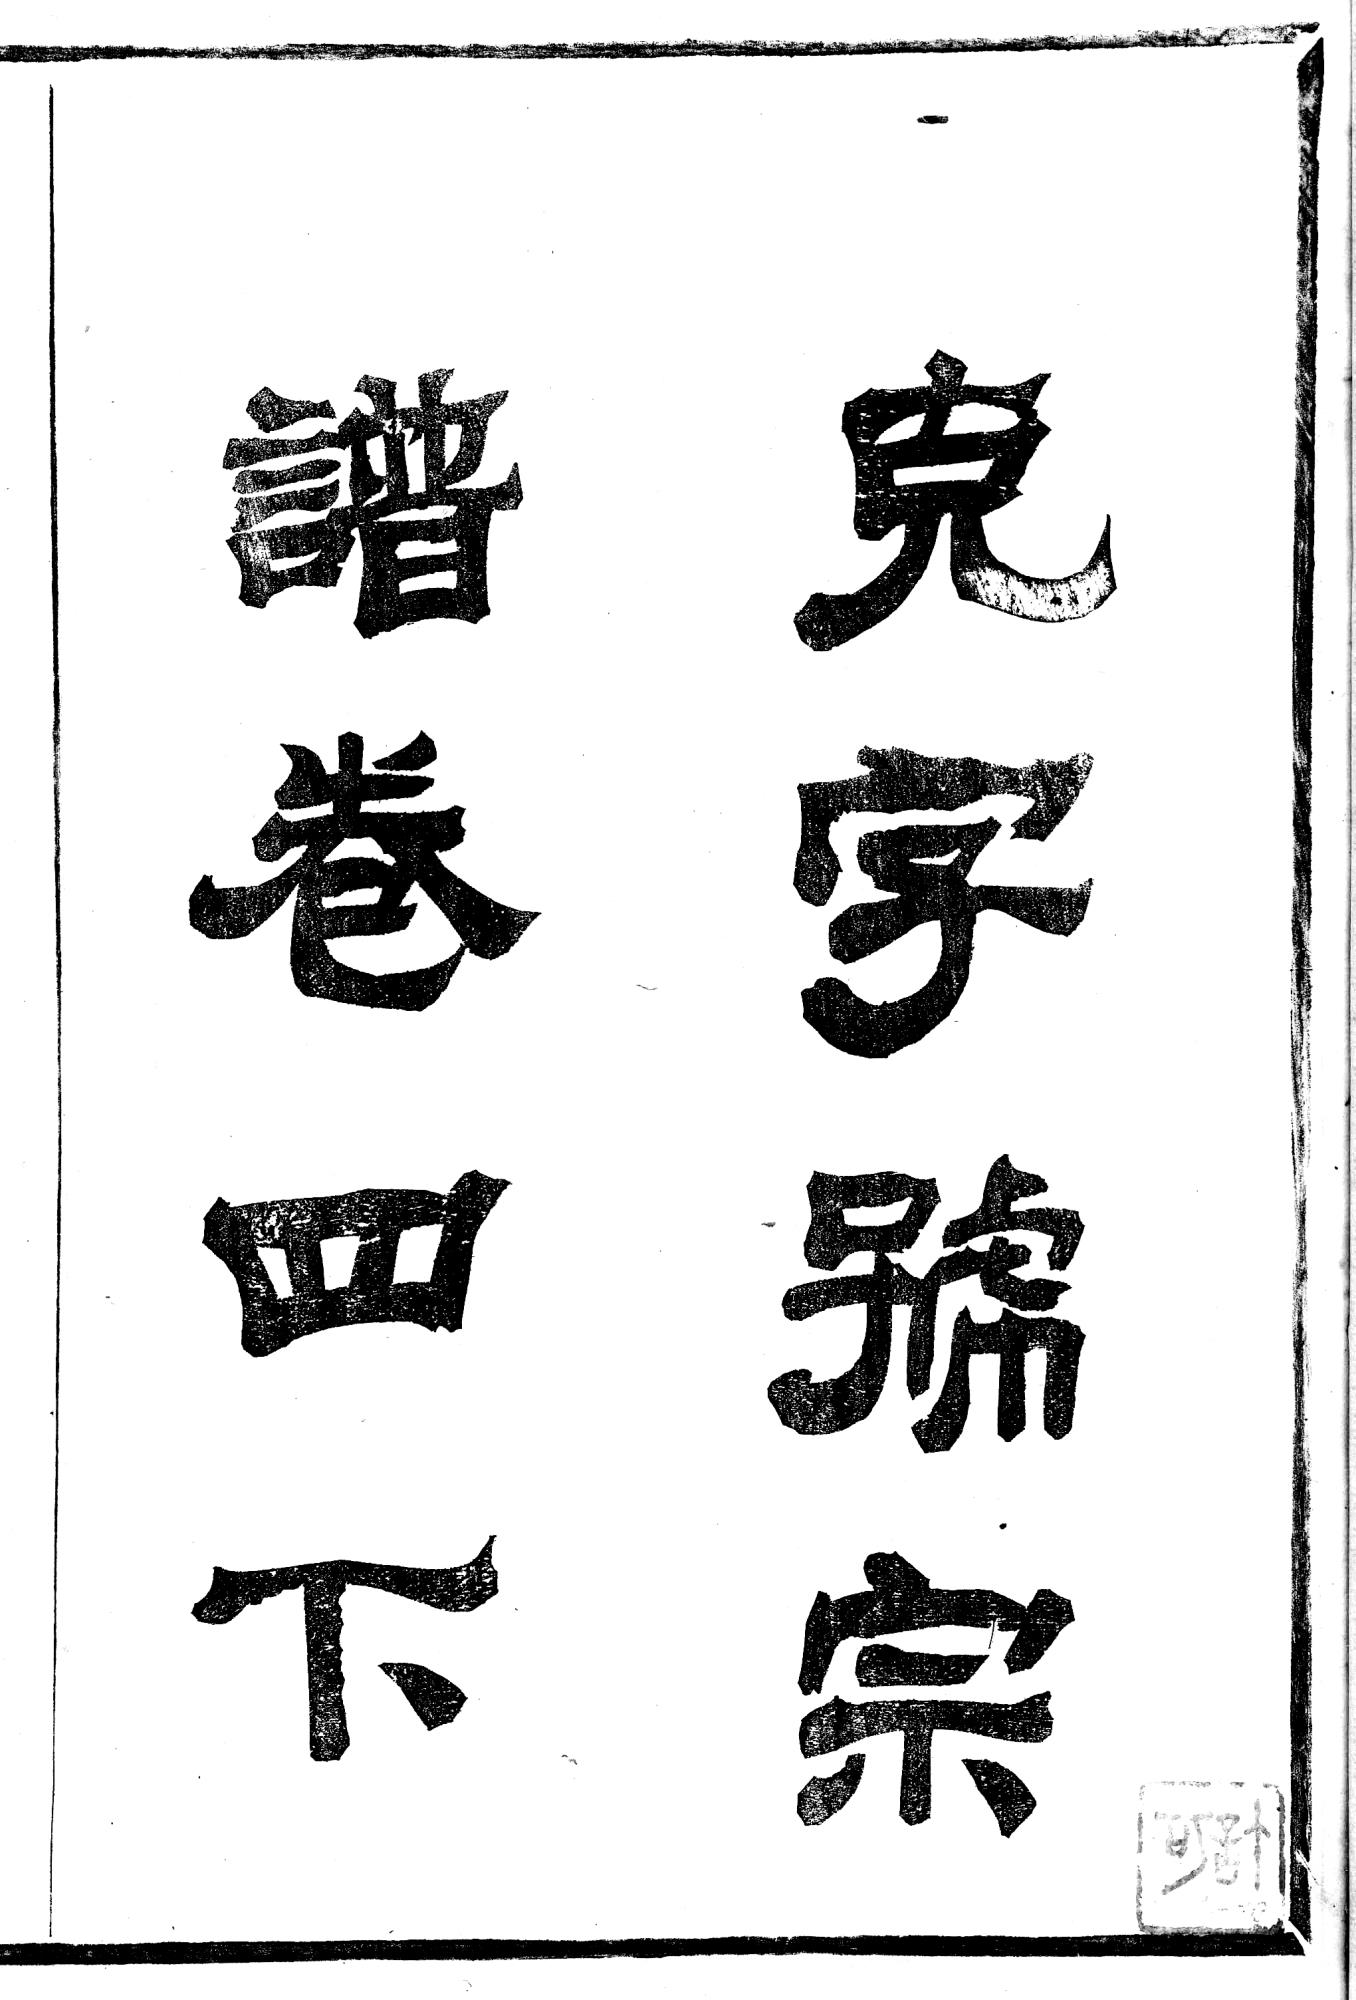 克字號宗
譜卷四下